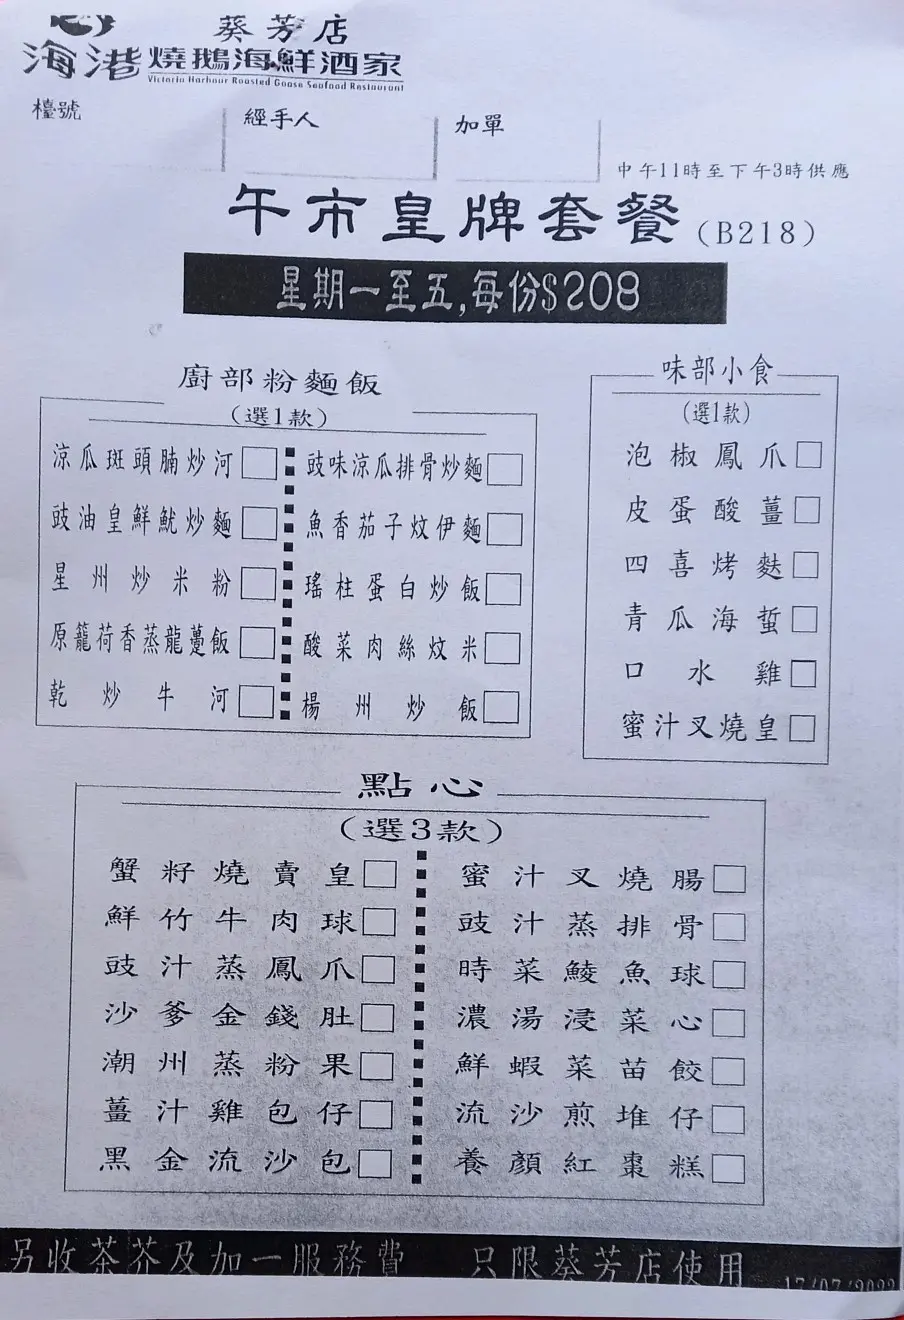 葵芳店
海港燒鵝海鮮酒家
Victoria Harbour Roasted Goose Seafood Restaurant
檯號
經手人
加單
中午11時至下午3時供應
午市皇牌套餐(B218)
星期一至五,每份$208
廚部粉麵飯
(選1款)
涼瓜斑頭腩炒河
豉油皇鮮魷炒麵
星州炒米粉
原籠荷香蒸龍躉飯
乾炒牛河
豉味涼瓜排骨炒麵
魚香茄子炆伊麵
瑤柱蛋白炒飯
酸菜肉絲炆米
楊州炒飯
味部小食
(選1款)
泡椒鳳爪
皮蛋酸薑
四喜烤麩
青瓜海蜇
口水雞
蜜汁叉燒皇
點心
(選3款)
蟹籽燒賣皇
鮮竹牛肉球
豉汁蒸鳳爪
沙爹金錢肚
潮州蒸粉果
薑汁雞包仔
黑金流沙包
蜜汁叉燒腸
豉汁蒸排骨
時菜鯪魚球
濃湯浸菜心
鮮蝦菜苗餃
流沙煎堆仔
養顏紅棗糕
另收茶芥及加一服務費 只限葵芳店使用